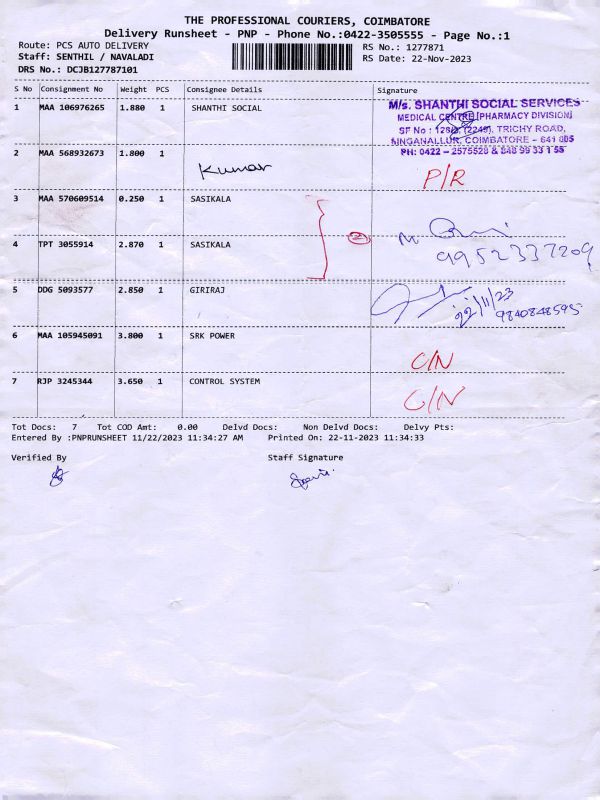 THE PROFESSIONAL COURIERS, COIMBATORE
Delivery Runsheet - PNP - Phone No.:0422-3505555 - Page No.:1
Route: PCS AUTO DELIVERY RS No.: 1277871
Staff: SENTHIL / NAVALADI RS Date: 22-Nov-2023
DRS No.: DCJB127787101
S No Consignment No Weight PCS Consignee Details Signature
1 MAA 106976265 1.880 1 SHANTHI SOCIAL
M/s. SHANTHI SOCIAL SERVICES
MEDICAL CENTRE [PHARMACY DIVISION]
SF No : (2249), TRICHY ROAD,
SINGANALLUR, COIMBATORE - 641 005
PH: 0422 - 2575528 &
2 MAA 568932673 1.800 1
Kumar P/R
3 MAA 570609514 0.250 1 SASIKALA
2
4 TPT 3055914 2.870 1 SASIKALA
9952337209
5 DDG 5093577 2.850 1 GIRIRAJ
22/11/23
9840848595
6 MAA 105945091 3.800 1 SRK POWER
C/N
7 RJP 3245344 3.650 1 CONTROL SYSTEM
C/N
Tot Docs: 7 Tot COD Amt: 0.00 Delvd Docs: Non Delvd Docs: Delvy Pts:
Entered By :PNPRUNSHEET 11/22/2023 11:34:27 AM Printed On: 22-11-2023 11:34:33
Verified By Staff Signature